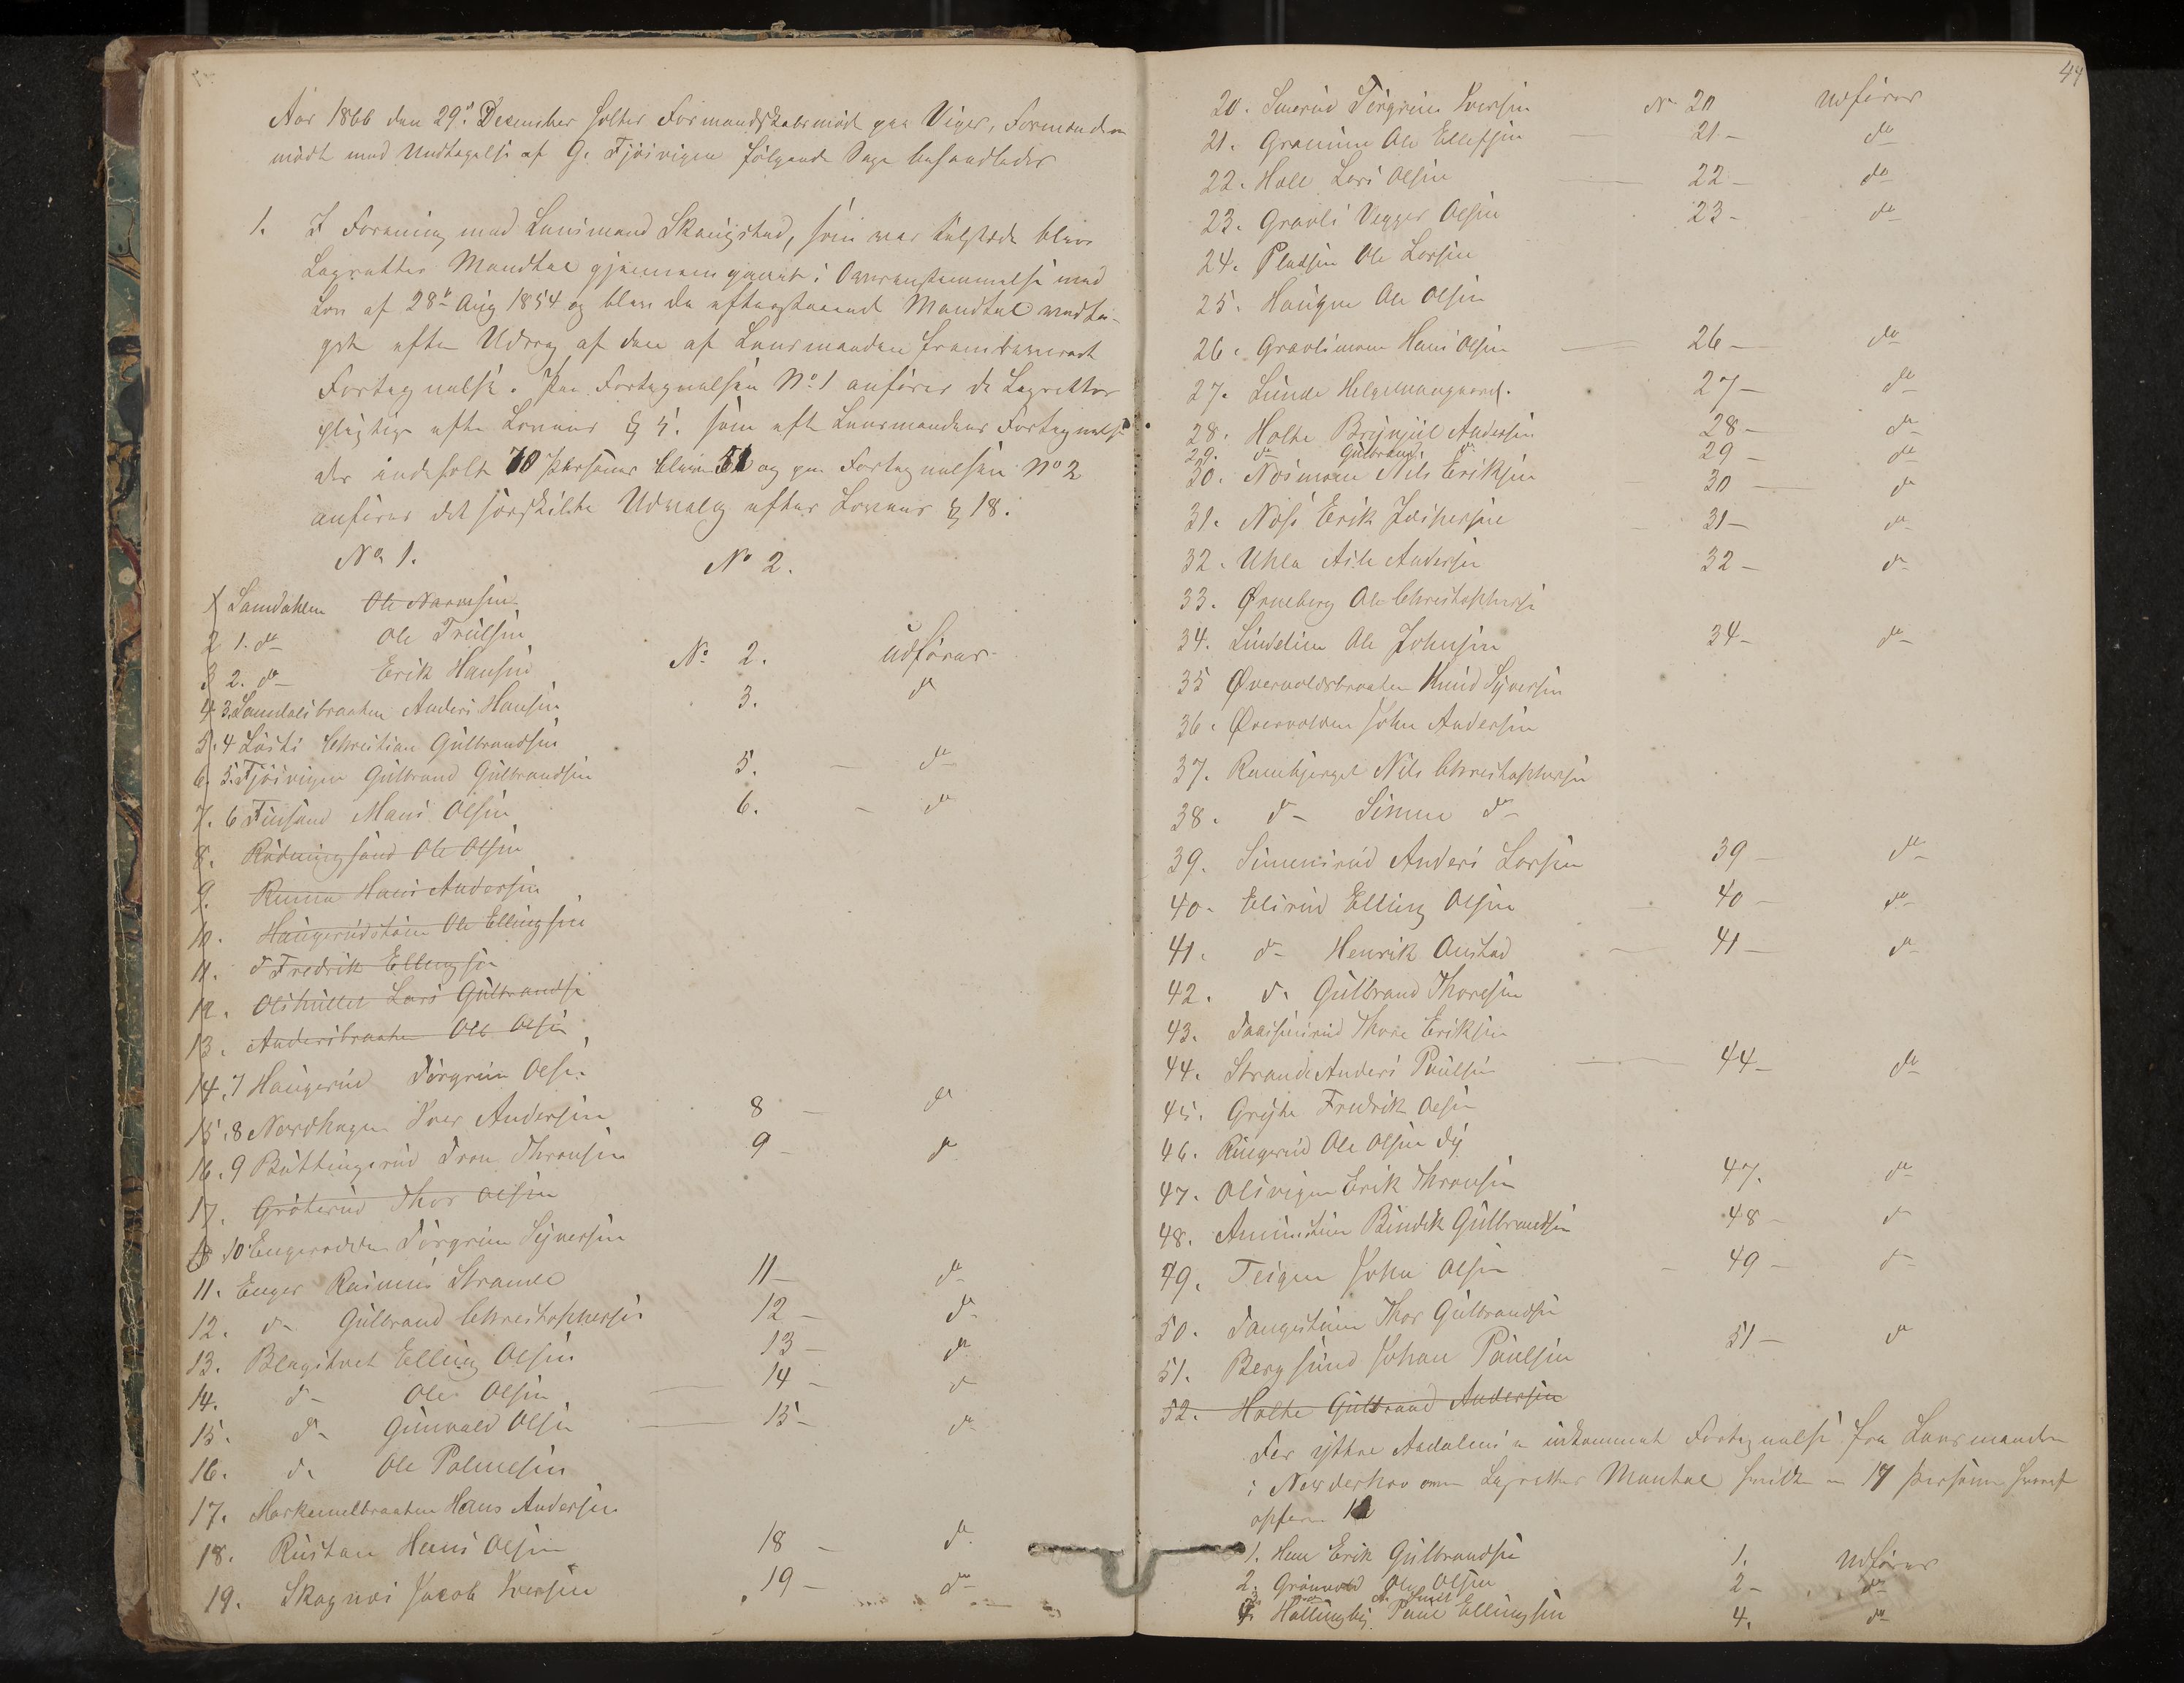 Aar 1866 den 29de December holtes Formandskabsmöde paa Viger, Formændene
mödt med Undtagelse af G. Fjösvigen følgende Sage behandledes
1. I Forening med Lensmand Skougstad, som var tilstede blev
Lagrettes Mandtal gjennemgaaet i Overensstemmelse med
Lov af 28de Aug 1854 og blev da efterstaaende Mandtal vedta-
get efter Udrag af den af Lensmanden frembragte
Fortegnelse. Paa Fortegnelsen No 1 anföres de Lagrettes
pligtige efter Lovens § 5. som efter Lensmandens Fortegnelse
der indeholt 70 Personer blev 51 og paa Fortegnelsen No 2
anföres det særskilte Udvalg efter Lovens § 18.
No 1. No 2.
1 Samdahlen Ole Narvesen
2 1. do Ole Trulsen No 2. udföres
3 2. do Erik Hansen 3. do
4 3. Samdalsbraaten Anders Hansen
5. 4 Løsti Christian Gulbrandsen 5. – do
6. 5. Fjösvigen Gulbrand Gulbrandsen 6. – do
7. 6 Finsand Hans Olsen
8. Rudningsand Ole Olsen
9. Runna Hans Andersen
10. Haugerudstøen Ole Ellingsen
11. do Fredrik Ellingsen
12. Olshullet Lars Gulbrandsen
13. Andersbraaten Ole Olsen
14. 7 Haugerud Torgrim Olsen
15. 8 Nordhagen Iver Andersen 8 – do
16. 9 Buttingsrud Tron Thronsen 9 – do
17. Gröterud Thor Olsen
18 10 Engerodden Torgrim Syversen
11. Enger Rasmus Strande 11 – do
12. do Gulbrand Christophersen 12 – do
13. Blagstvet Elling Olsen 13 – do
14. do Ole Olsen 14 – do
15. do Gunvald Olsen 15 – do
16. do Ole Palmesen
17. Hans Andersen
18. Rustan Hans Olsen 18 – do
19. Skagnæs Jacob Iversen 19 – do
44
20. Smerud Torgrim Iversen No 20 Udföres
21. Gramim Ole Ellefsen 21 – do
22. Hall Lars Olsen 22 – do
23. Gravli Vegger Olsen 23 – do
24. Pladsen Ole Larsen
25. Haugen Ole Olsen
26. Gravlimoen Hans Olsen 26 – do
27. Lunde Helge 27 – do
28. Holte Brynjul Andersen 28 – do
29. do Gulbrand do 29 – do
30. Næsmoen Nils Eriksen 30 – do
31. Næs Erik Jespersen 31 – do
32. Uhla Asle Andersen 32 – do
33. Ørneberg Ole Christophersen
34. Lindelien Ole Johnsen 34 – do
35 Øvervoldsbraaten Knud Syversen
36. Øvervolden John Andersen
37. Rambjerget Nils Christophersen
38. do – Simen do –
39. Simensrud Anders Larsen 39 – do
40. Elsrud Elling Olsen 40 – do
41. do Henrik Onstad 41 – do
42. do Gulbrand Thoresen
43. Thore Eriksen
44. Strande Anders Paulsen 44 – do
45. Gryte Fredrik Olsen
46. Ringerud Ole Olsen dy
47. Olsvigen Erik Thronsen 47. do
48. Bendik Gulbrandsen 48 – do
49. Teigen John Olsen 49 – do
50. Tangestuen Thor Gulbrandsen
51. Bergsund Johan Paulsen 51 – do
52. Holte Gulbrand Andersen
For ytre Aadalens er indkommet Fortegnelse fra Lensmanden
i Norderhov over Lagrettes Mantal hvilke er 17 Personer hvoraf
opføres
1. Hen Erik Gulbrandsen 1. Udföres
2. Grönvold Ole Olsen 2 – do
3.
4. Hallingby Paul Ellingsen 4. do